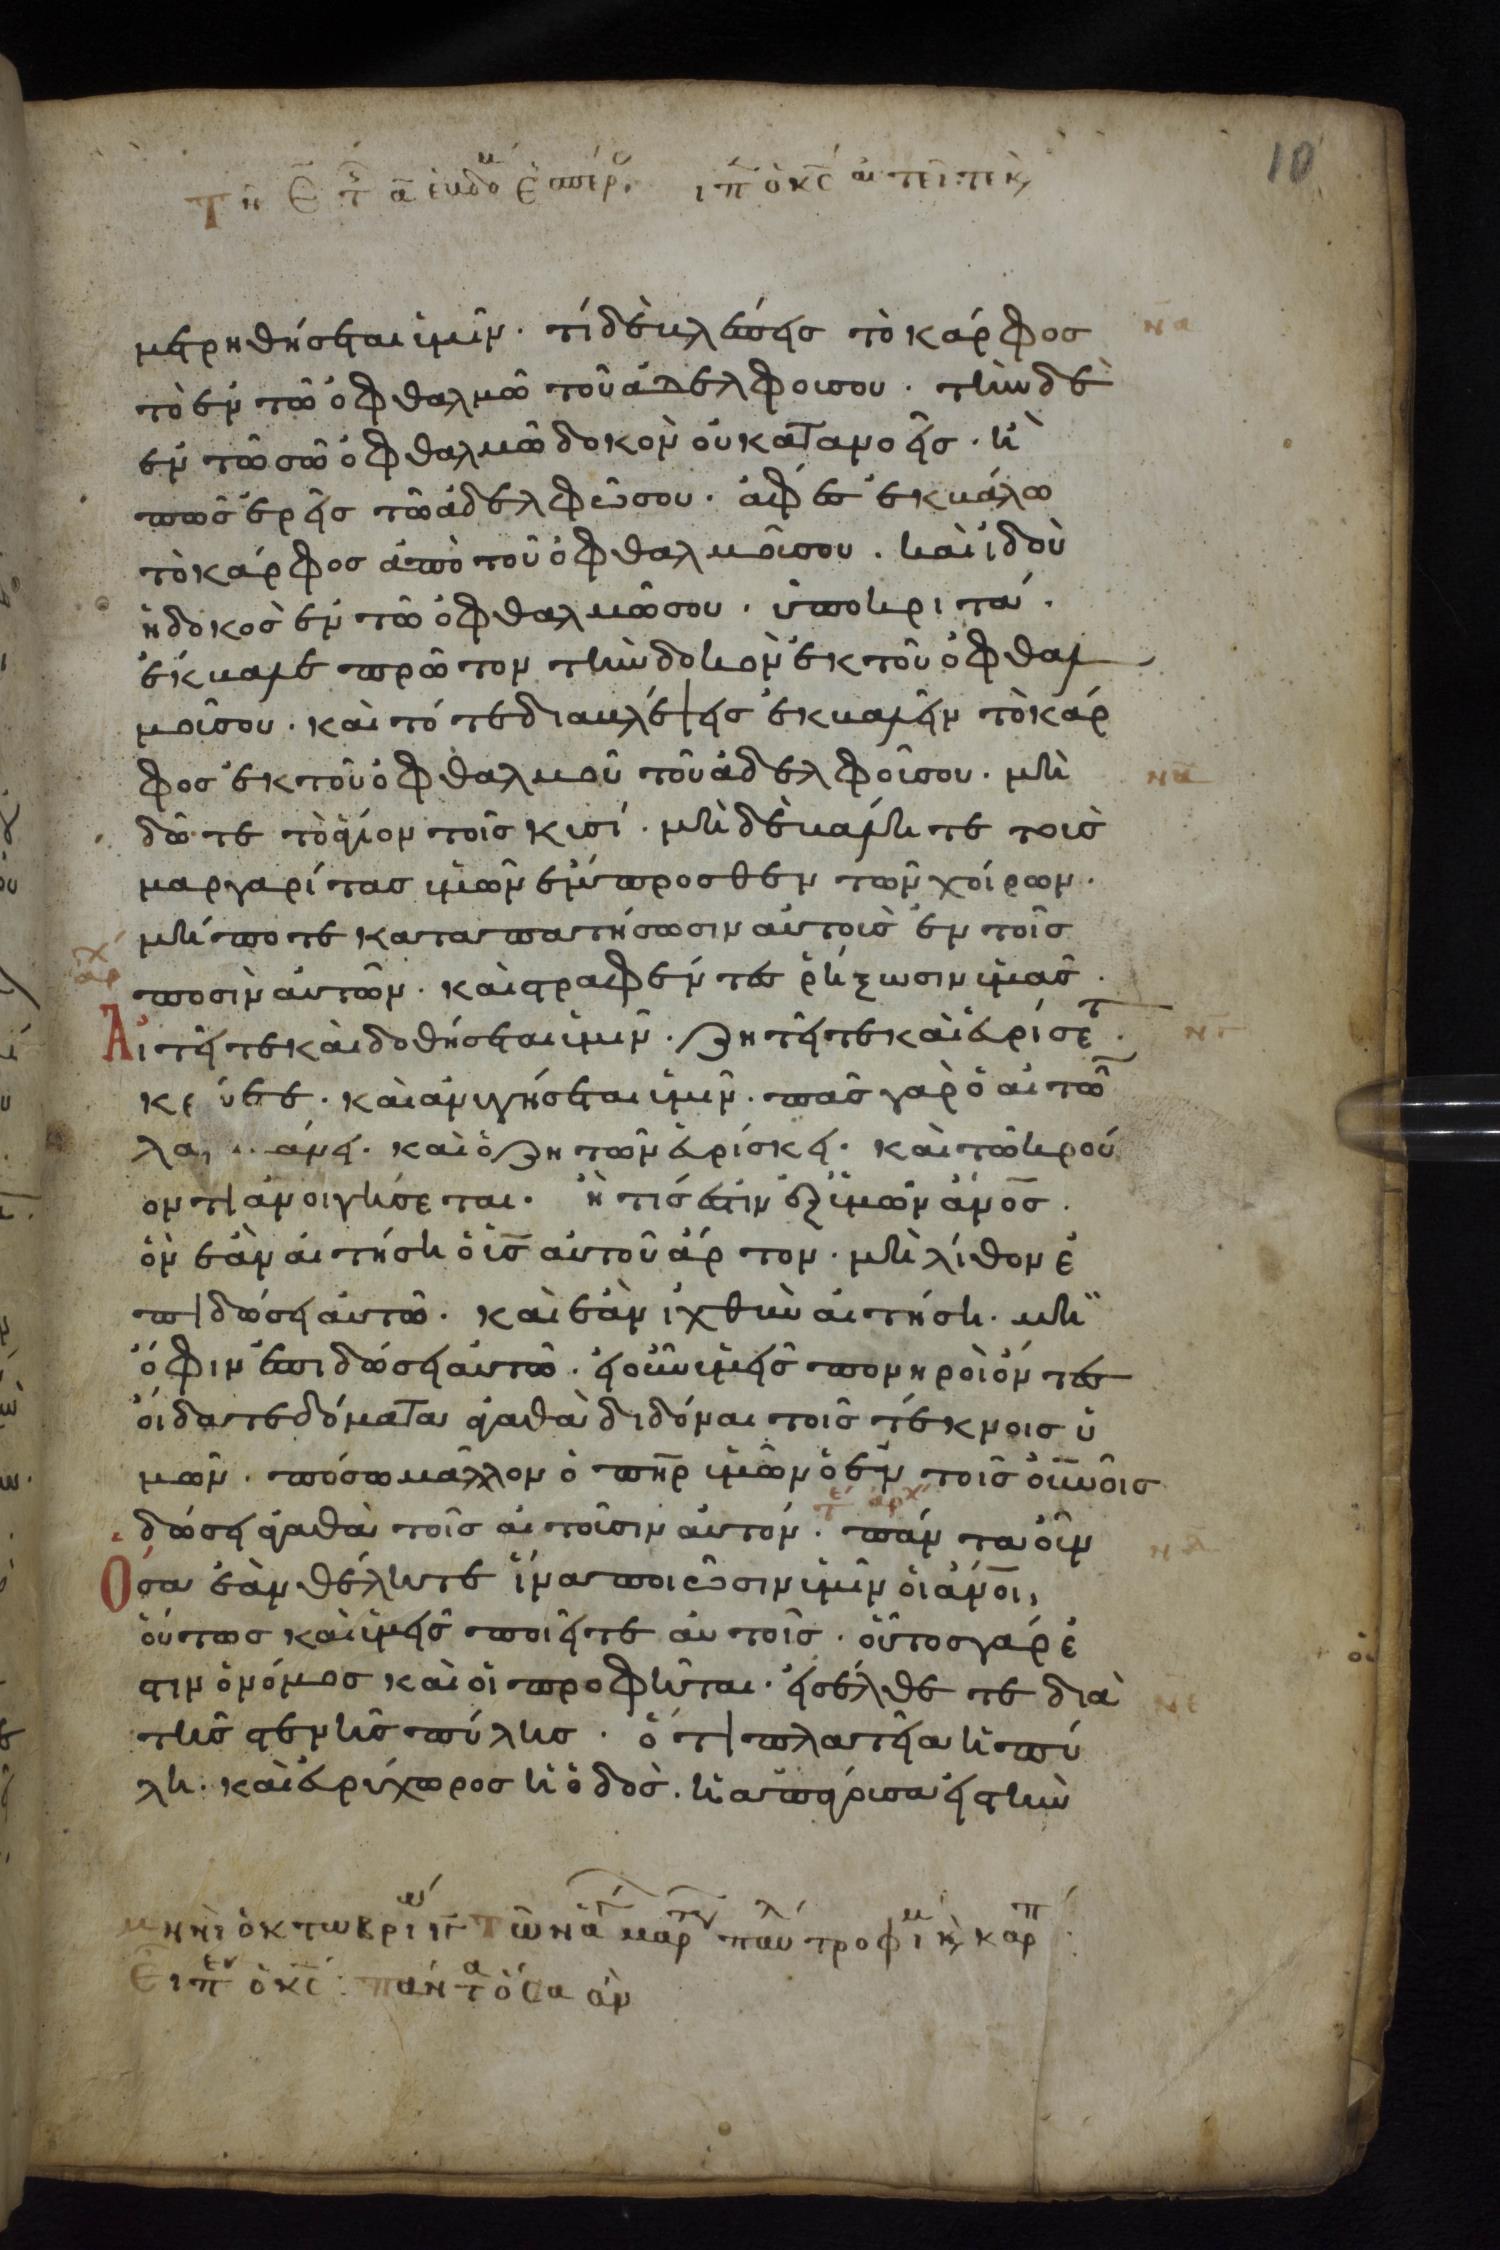 τῆ ε̄ τ̑ ᾱ ἑβδο ἑσπέρ ιπ̄ ὁ κ̅ς̅ αἰτεῖτε κ,
10
μετρηθήσεται ὑμῖν· τί δὲ βλέπεις τὸ κάρφος
τὸ ἐν τῶ ὀφθαλμῶ τοῦ ἀδελφοῦ σου· τὴν δὲ
ἐν τῶ σῶ ὀφθαλμῶ δοκὸν οὐ κατανοεῖς· ἢ
πῶς ἐρεῖς τῶ ἀδελφῶ σου· ἄφες ἐκβάλω
τὸ κάρφος ἀπὸ τοῦ ὀφθαλμοῦ σου· καὶ ἰδοὺ
ἡ δοκὸς ἐν τῶ ὀφθαλμῶ σου· ὑποκριτά·
ἔκβαλε πρῶτον τὴν δοκὸν ἐκ τοῦ ὀφθαλ
μοῦ σου· καὶ τότε διαβλέψεις ἐκβαλεῖν τὸ κάρ
φος ἐκ τοῦ ὀφθαλμοῦ τοῦ ἀδελφοῦ σου· μὴ
δῶτε τὸ ἅγιον τοῖς κυσί· μὴ δὲ βάλητε τοὺς
μαργαρίτας ὑμῶν ἔμπροσθεν τῶν χοίρων·
μήποτε καταπατήσωσιν αὐτοὺς ἐν τοῖς
ἀρχ
ποσὶν αὐτῶν· καὶ στραφέντες ῥήξωσιν ὑμᾶς·
Αἰτεῖτε καὶ δοθήσεται ὑμῖν· ζητεῖτε καὶ εὑρήσετ·
κρ ύετε· καὶ ἀνυγήσεται ὑμῖν· πᾶς γὰρ ὁ αἰτῶν
λα άνει· καὶ ὁ ζητῶν εὑρίσκει· καὶ τῶ κρού
οντι ἀνοιγήσεται· ἢ τίς ἐστιν ἐξ ὑμῶν ἄν̅ο̅ς̅·
ὃν ἐὰν αἰτήση ὁ υ̅ς̅ αὐτοῦ ἄρτον· μὴ λίθον ἐ
πιδώσει αὐτῶ· καὶ ἐὰν ἰχθὺν αἰτήση· μὴ
ὄφιν ἐπιδώσει αὐτῶ· εἰ οὖν ὑμεῖς πονηροὶ ὄντες
οἴδατε δόματα ἀγαθὰ διδόναι τοῖς τέκνοις ὑ
μῶν· πόσω μᾶλλον ὁ π̅η̅ρ̅ ὑμῶν ὁ ἐν τοῖς ο̅υ̅ν̅ο̅ι̅ς̅
τέ ἀρχ
δώσει ἀγαθὰ τοῖς αἰτοῦσιν αὐτόν· πάντα οὖν
Ὅσα ἐὰν θέλητε ἵνα ποιῶσιν ὑμῖν οἱ ἄν̅ο̅ι̅,
οὕτως καὶ ὑμεῖς ποιεῖτε αὐτοῖς· οὗτος γάρ ἐ
στιν ὁ νόμος καὶ οἱ προφῆται· εἰσέλθετε διὰ
τῆς στενῆς πύλης· ὅτι πλατεῖα ἡ πύ
λη· καὶ εὐρύχωρος ἡ ὁδὸς· ἡ ἀπάγουσα εἰς τὴν
μηνὶ ὀκτωβρίω ῑγ τῶν ἁγ μαρτυ παύλ τροφιμ κ, καρπ:
Εἶπεν ὁ κ̅ς̅: πάντα ὅσα ἂν